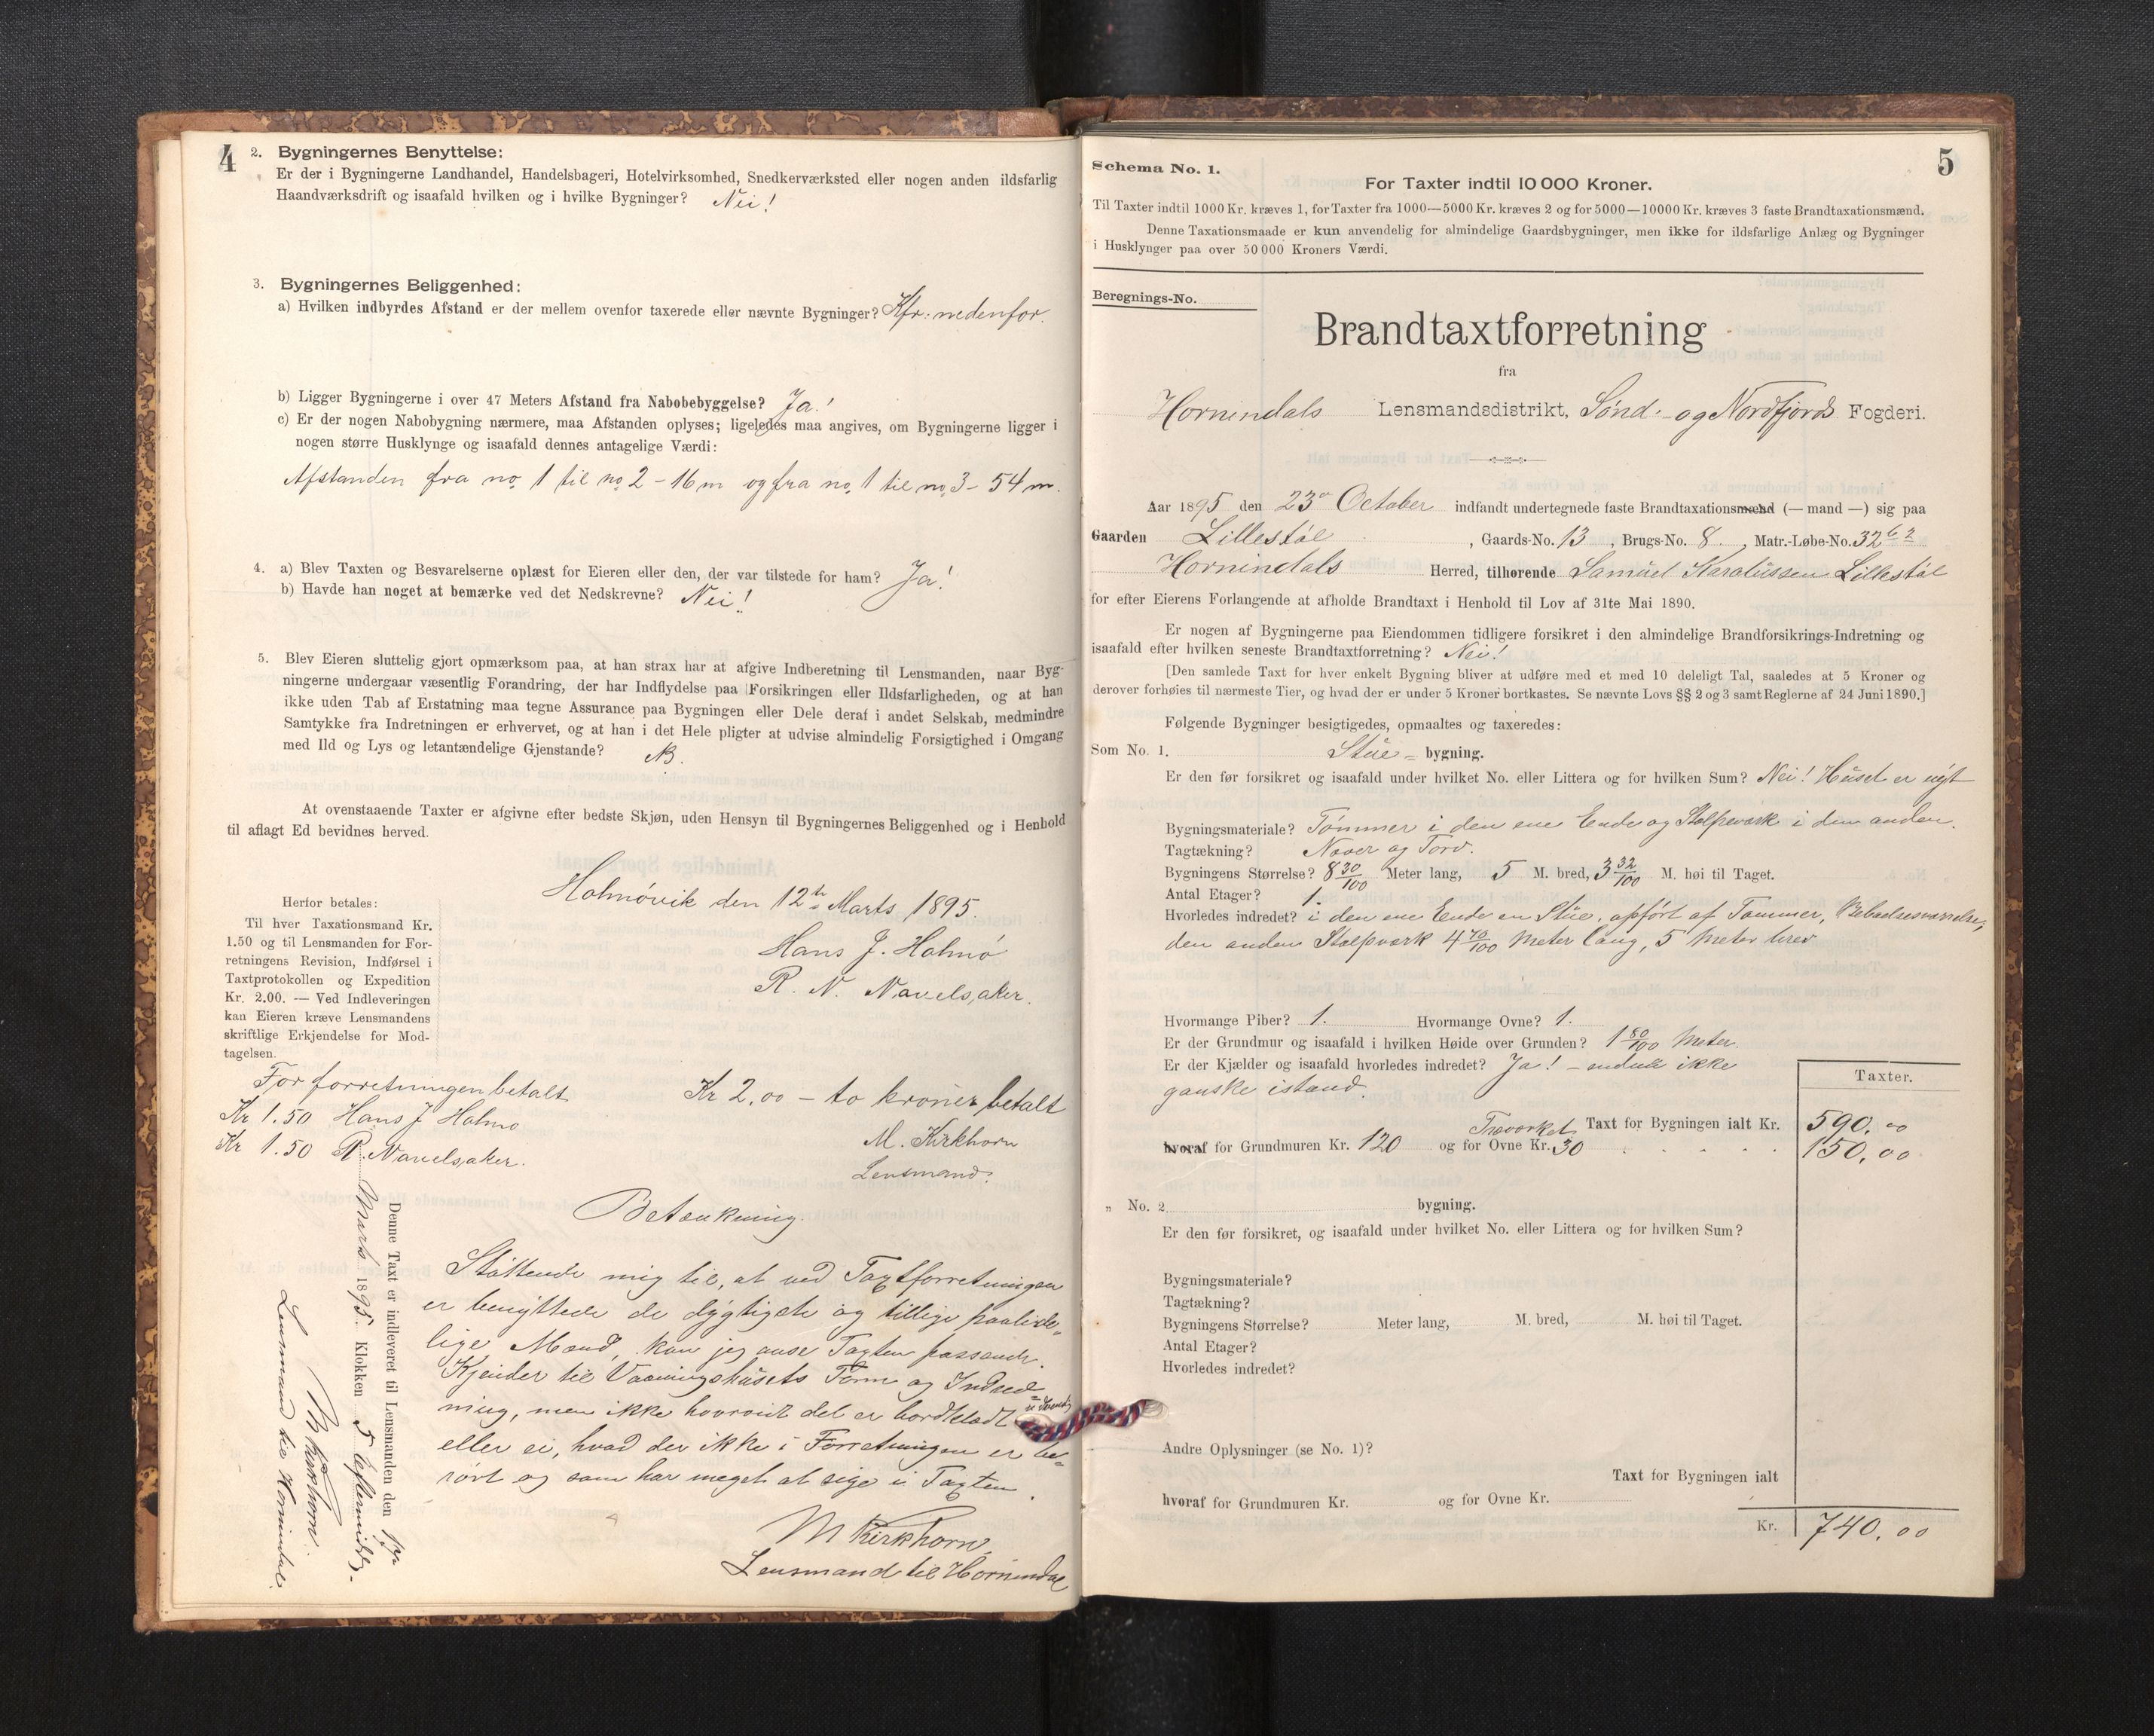 4
2. Bygningernes Benyttelse:
Er der i Bygningerne Landhandel, Handelsbageri, Hotelvirksomhed, Snedkerværksted eller nogen anden ildsfarlig
Haandværksdrift og isaafald hvilken og i hvilke Bygninger? Nei!
3. Bygningernes Beliggenhed:
a) Hvilken indbyrdes Afstand er der mellem ovenfor taxerede eller nævnte Bygninger? Kfr. nedenfor.
b) Ligger Bygningerne i over 47 Meters Afstand fra Nabobebyggelse? Ja!
c) Er der nogen Nabobygning nærmere, maa Afstanden oplyses; ligeledes maa angives, om Bygningerne ligger i
nogen større Husklynge og isaafald dennes antagelige Værdi:
Afstanden fra no. 1 til no. 2 - 16 m og fra no. 1 til no. 3 - 54 m.
4. a) Blev Taxten og Besvarelserne oplæst for Eieren eller den, der var tilstede for ham? Ja!
b) Havde han noget at bemærke ved det Nedskrevne? Nei!
5. Blev Eieren sluttelig gjort opmærksom paa, at han strax har at afgive Indberetning til Lensmanden, naar Byg-
ningerne undergaar væsentlig Forandring, der har Indflydelse paa Forsikringen eller Ildsfarligheden, og at han
ikke uden Tab af Erstatning maa tegne Assurance paa Bygningen eller Dele deraf i andet Selskab, medmindre
Samtykke fra Indretningen er erhvervet, og at han i det Hele pligter at udvise almindelig Forsigtighed i Omgang
med Ild og Lys og letantændelige Gjenstande?
At ovenstaaende Taxter er afgivne efter bedste Skjøn, uden Hensyn til Bygningernes Beliggenhed og i Henhold
til aflagt Ed bevidnes herved.
Holmøvik den 12te Marts 1895.
Hans J. Holmø
R. N. Navelsaker.
Herfor betales:
Til hver Taxationsmand Kr.
1.50 og til Lensmanden for For-
retningens Revision, Indførsel i
Taxtprotokollen og Expedition
Kr. 2.00. — Ved Indleveringen
kan Eieren kræve Lensmandens
skriftlige Erkjendelse for Mod-
tagelsen.
For forretningen betalt
Kr 1.50 Hans J Holmø
Kr 1.50 R. Navelsaker.
Kr 2,00 - to kroner betalt
M. Kirkhorn
Lensmand.
Denne Taxt er indleveret til Lensmanden den
Marts 1895. Klokken 5 Eftermiddg.
M Kirkhorn.
Lensmand til Hornindal.
Betænkning.
Støttende mig til, at ved Taxtforretningen
er benyttede de dygtigste og tillige paalide-
lige Mænd, kan jeg anse Taxten passende.
Kjender til Vaaningshusets Form og Indred-
ning, men ikke hvorvidt det er bordklædt
eller ei, hvad der ikke i Forretningen er be-
rørt og som har meget at sige i Taxten.
M Kirkhorn,
Lensmand til Hornindal
5
Schema No. 1.
For Taxter indtil 10 000 Kroner.
Til Taxter indtil 1000 Kr. kræves 1, for Taxter fra 1000—5000 Kr. kræves 2 og for 5000—10000 Kr. kræves 3 faste Brandtaxationsmænd.
Denne Taxationsmaade er kun anvendelig for almindelige Gaardsbygninger, men ikke for ildsfarlige Anlæg og Bygninger
i Husklynger paa over 50 000 Kroners Værdi.
Beregnings-No.
Brandtaxtforretning
fra
Hornindals Lensmandsdistrikt, Sønd- og Nordfjords Fogderi.
Aar 1895 den 23de October indfandt undertegnede faste Brandtaxationsmænd (— mand —) sig paa
Gaarden Lillestøl, Gaards-No. 13, Brugs-No. 8, Matr.-Løbe-No. 32 6 2
Hornindals Herred, tilhørende Samuel Karolussen Lillestøl
for efter Eierens Forlangende at afholde Brandtaxt i Henhold til Lov af 31te Mai 1890.
Er nogen af Bygningerne paa Eiendommen tidligere forsikret i den almindelige Brandforsikrings-Indretning og
isaafald efter hvilken seneste Brandtaxtforretning? Nei!
[Den samlede Taxt for hver enkelt Bygning bliver at udføre med et med 10 deleligt Tal, saaledes at 5 Kroner og
derover forhøies til nærmeste Tier, og hvad der er under 5 Kroner bortkastes. Se nævnte Lovs §§ 2 og 3 samt Reglerne af 24 Juni 1890.]
Følgende Bygninger besigtigedes, opmaaltes og taxeredes:
Som No. 1. Stue- bygning.
Er den før forsikret og isaafald under hvilket No. eller Littera og for hvilken Sum? Nei! Huset er nyt
Bygningsmateriale? Tømmer i den ene Ende og Stolpeværk i den anden.
Tagtækning? Næver og Torv.
Bygningens Størrelse? 8 30/100 Meter lang, 5 M. bred, 3 32/100 M. høi til Taget.
Antal Etager? 1.
Hvorledes indredet? i den ene Ende en Stue, opført af Tømmer, Beboelsesværelse,
den anden Stolpeværk 4 70/100 Meter lang, 5 Meter bred
Hvormange Piber? 1. Hvormange Ovne? 1.
Er der Grundmur og isaafald i hvilken Høide over Grunden? 1 80/100 Meter.
Er der Kjælder og isaafald hvorledes indredet? Ja! - endnu ikke
ganske istand.
Taxter.
Træværket Taxt for Bygningen ialt Kr. 590,00
hvoraf for Grundmuren Kr. 120 og for Ovne Kr. 30 150,00
„ No. 2 bygning.
Er den før forsikret, og isaafald under hvilket No. eller Littera og for hvilken Sum?
Bygningsmateriale?
Tagtækning?
Bygningens Størrelse? Meter lang, M. bred, M. høi til Taget.
Antal Etager?
Hvorledes indredet?
Andre Oplysninger (se No. 1)?
Taxt for Bygningen ialt
hvoraf for Grundmuren Kr. og for Ovne Kr.
Kr. 740,00